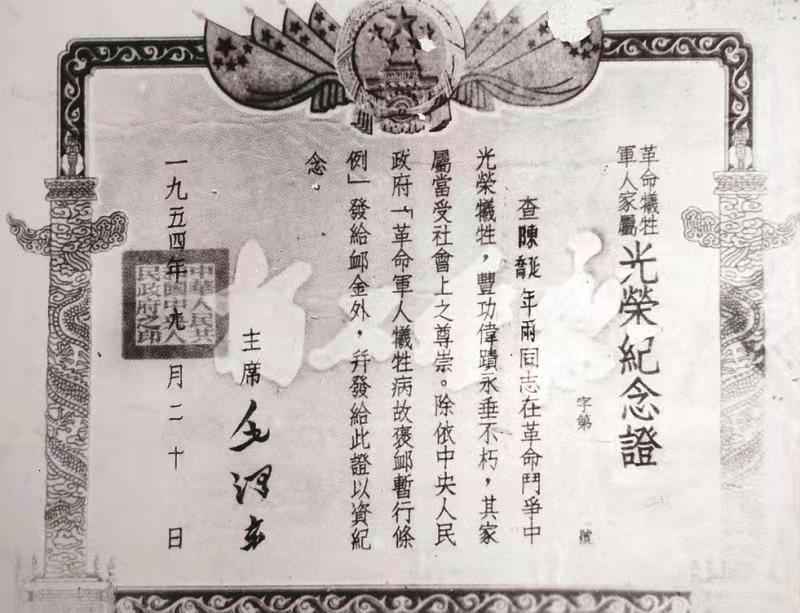 革命犧牲
軍人家屬
光榮紀念證
字第 號
查陳延喬年兩同志在革命鬥爭中
光榮犧牲，豐功偉蹟永垂不朽，其家
屬當受社會上之尊崇。除依中央人民
政府「革命軍人犧牲病故褒卹暫行條
例」發給卹金外，幷發給此證以資紀
念
主席 毛澤東
一九五四年九月二十日
中華人民共
和國中央人
民政府之印